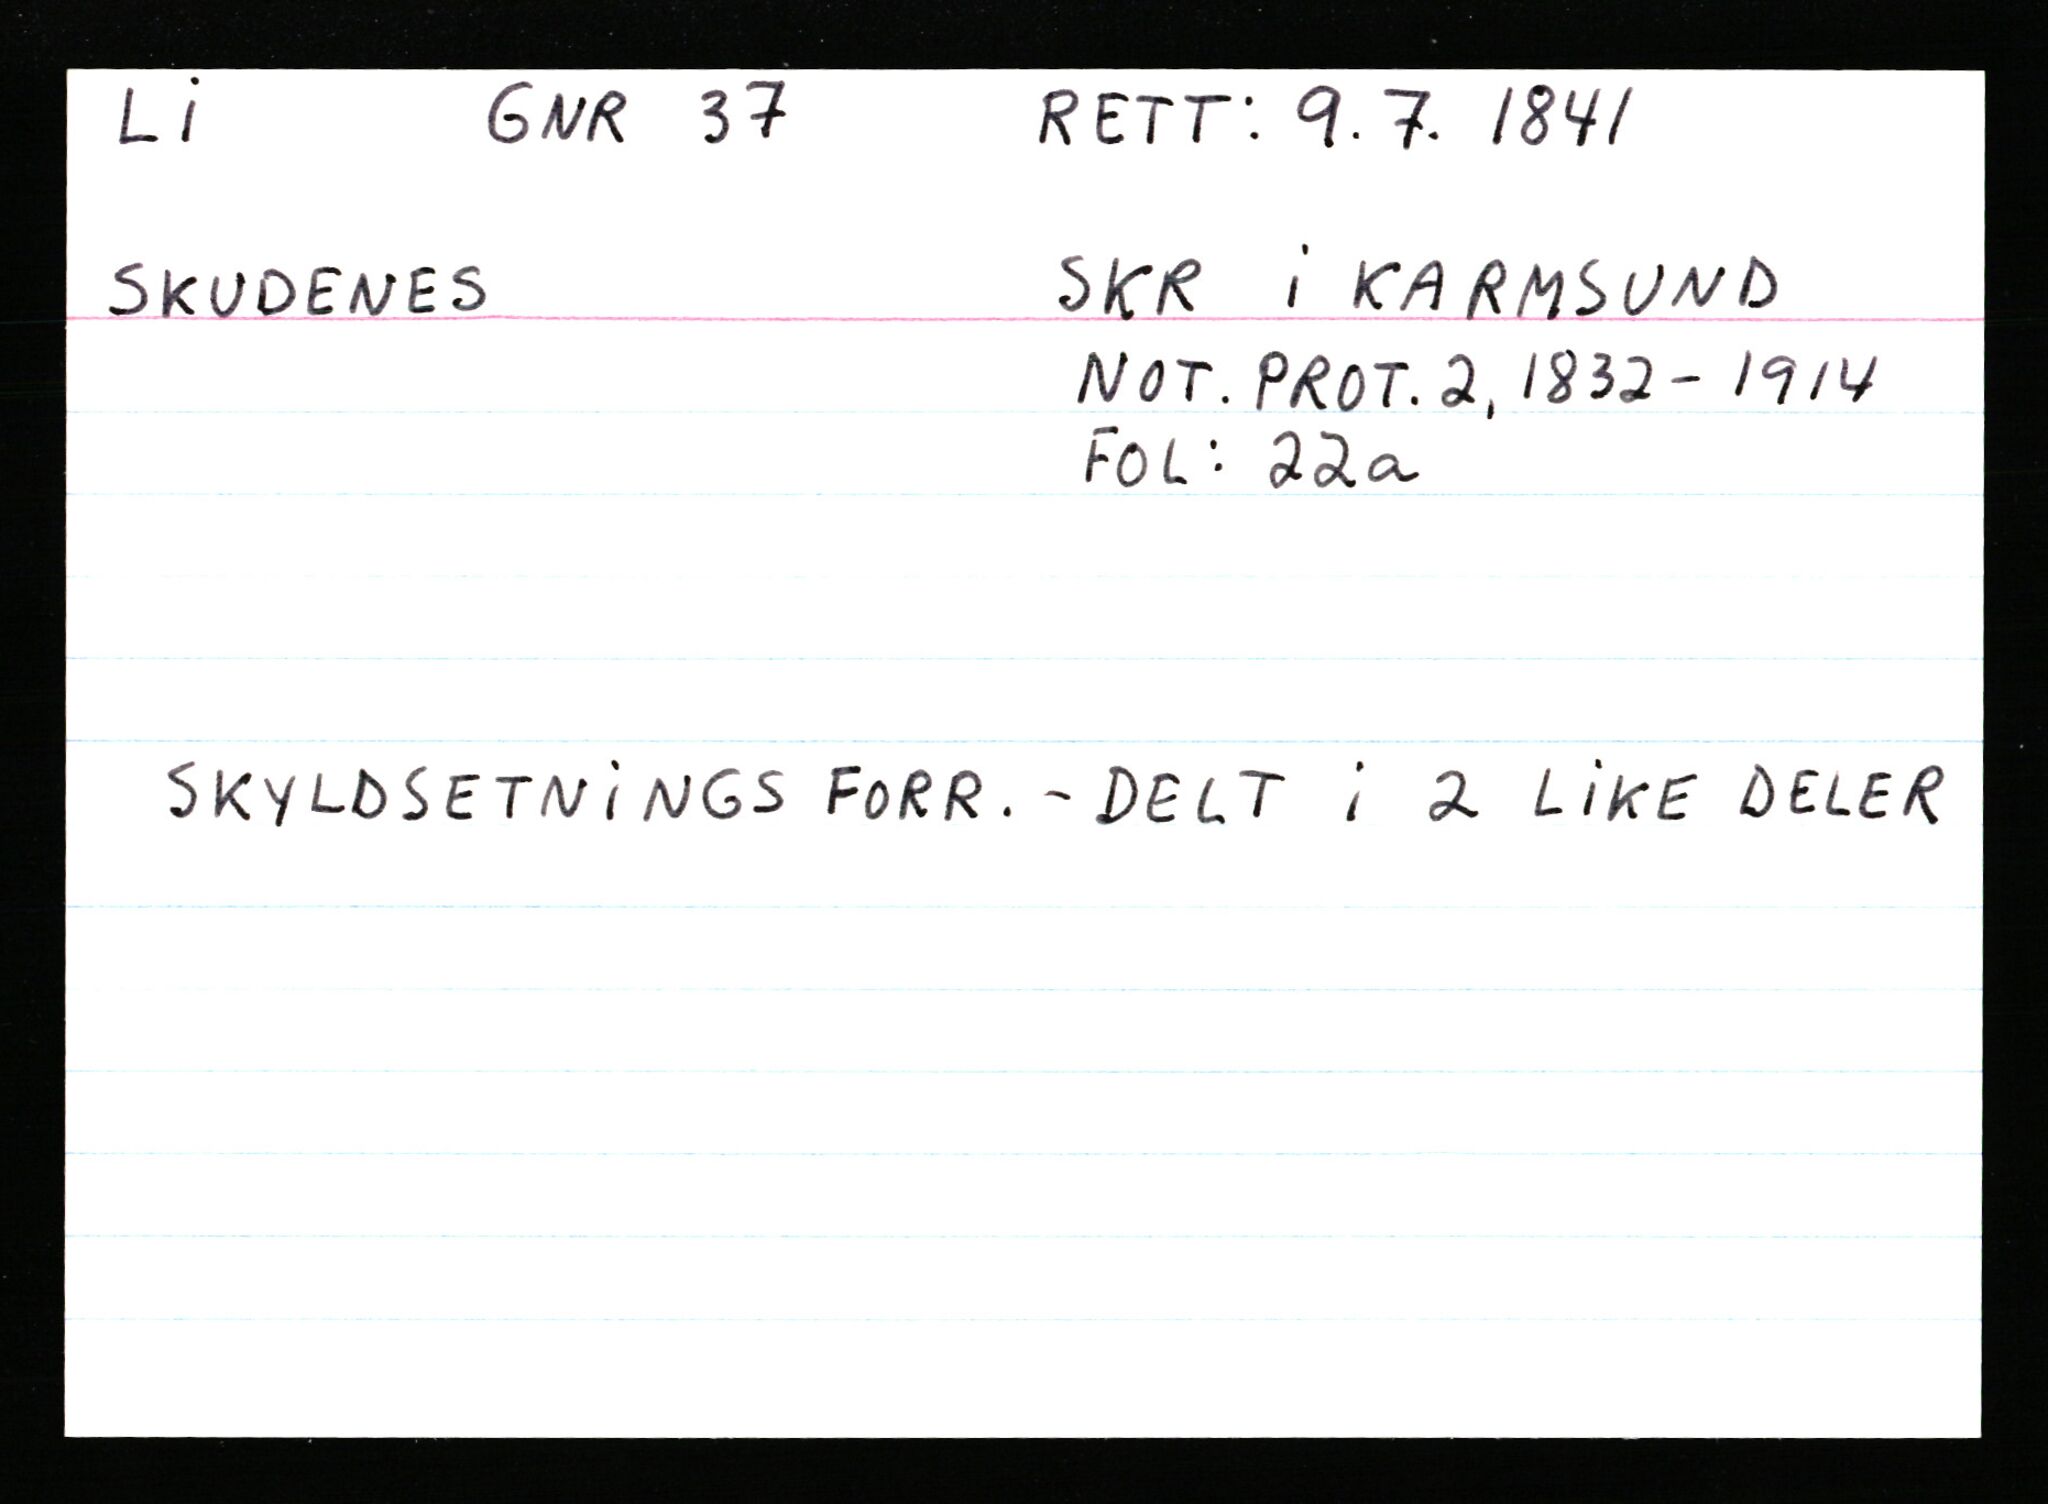 Li GNR 37 RETT: 9.7. 1841
SKUDENES SKR i KARMSUND
NOT. PROT. 2, 1832-1914
FOL: 22a
SKYLDSETNiNGS FORR. - DELT i 2 LiKE DELER